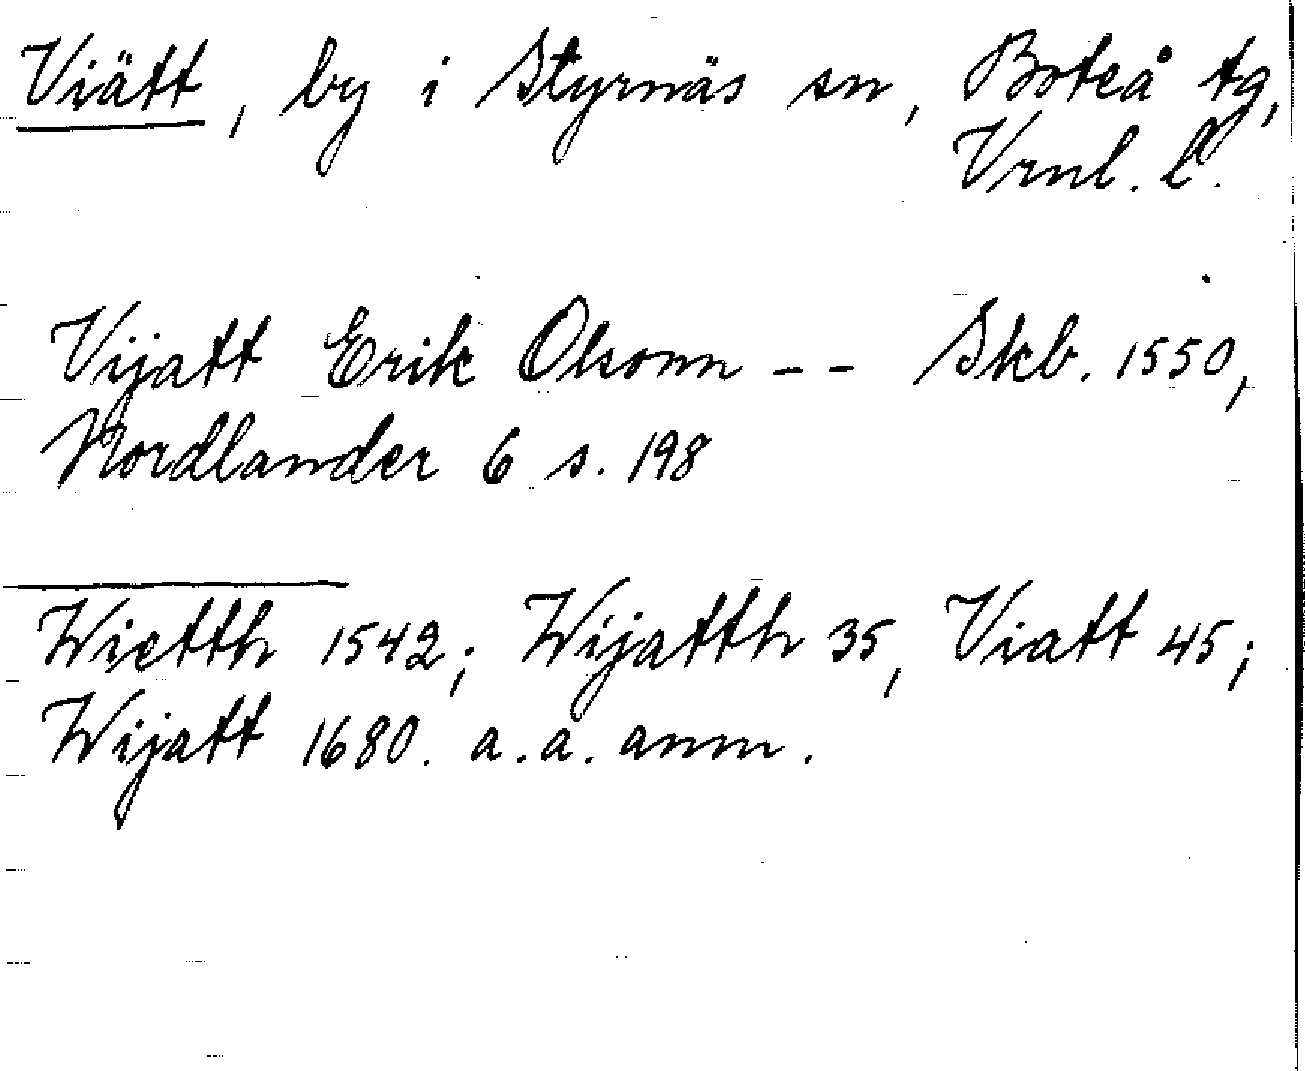 Viätt, by i Styrnäs sn, Boteå tg,
Vrnl. l.
Vijatt Erik Olsonn -- Skb. 1550,
Nordlander 6 s. 198
Wietth 1542; Wijatth 35, Viatt 45;
Wijatt 1680. a.a. anm.